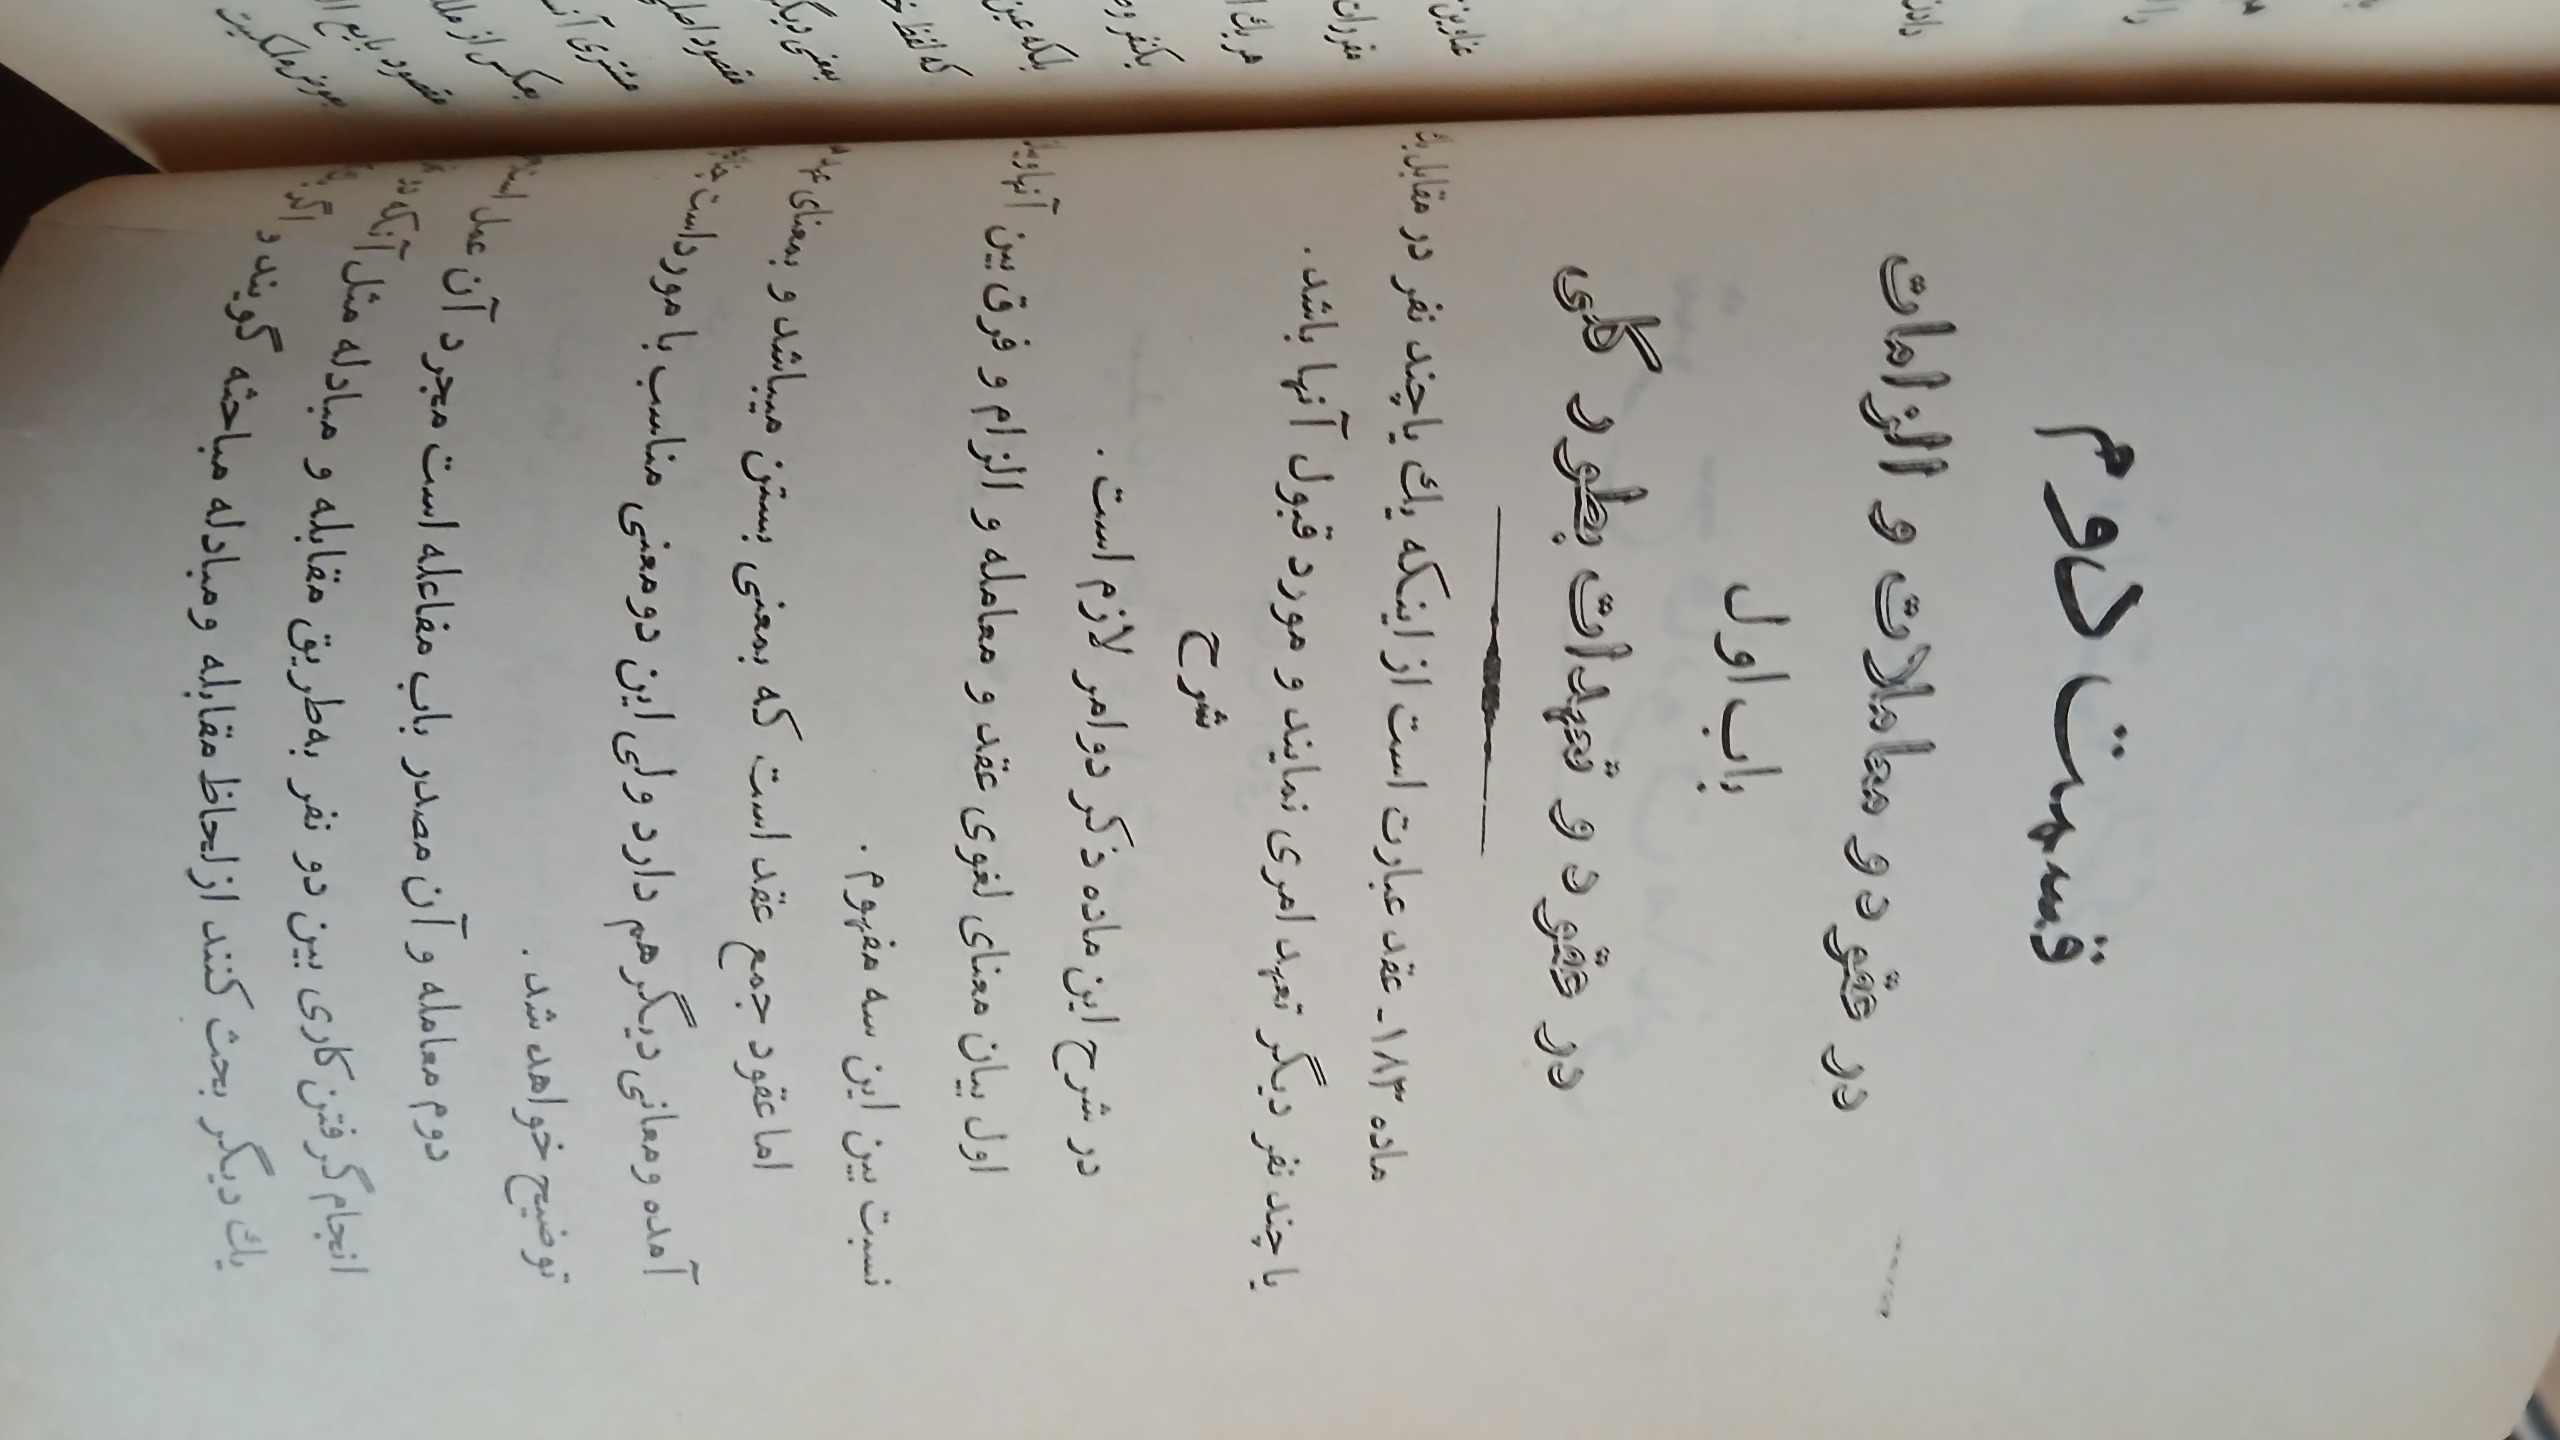 قسمت دوم
در عقود و معاملات و الزامات
باب اول
در عقود و تعهدات بطور کلی
ماده ۱۸۳- عقد عبارت است از اینکه یك یا چند نفر در مقابل یك
یا چند نفر دیگر تعهد امری نمایند و مورد قبول آنها باشد.
شرح
در شرح این ماده ذکر دو امر لازم است .
اول بیان معنای لغوی عقد و معامله و الزام و فرق بین آنها و بیان
نسبت بین این سه مفهوم .
اما عقود جمع عقد است که بمعنی بستن میباشد و بمعنای عهد
آمده و معانی دیگر هم دارد ولی این دو معنی مناسب با مورد است
توضیح خواهد شد .
دوم معامله و آن مصدر باب مفاعله است مجرد آن عمل است
انجام گرفتن کاری بین دو نفر به طریق مقابله و مبادله مثل آنکه دو
یك دیگر بحث کنند از لحاظ مقابله و مبادله مباحثه گویند و اگر
عناوین
هر یك
یکنفر
بلکه عین
که لفظ
بمعنی دیگر
مقصود
مشتری
بعکس از
مقصود بایع
عوض ملکیت